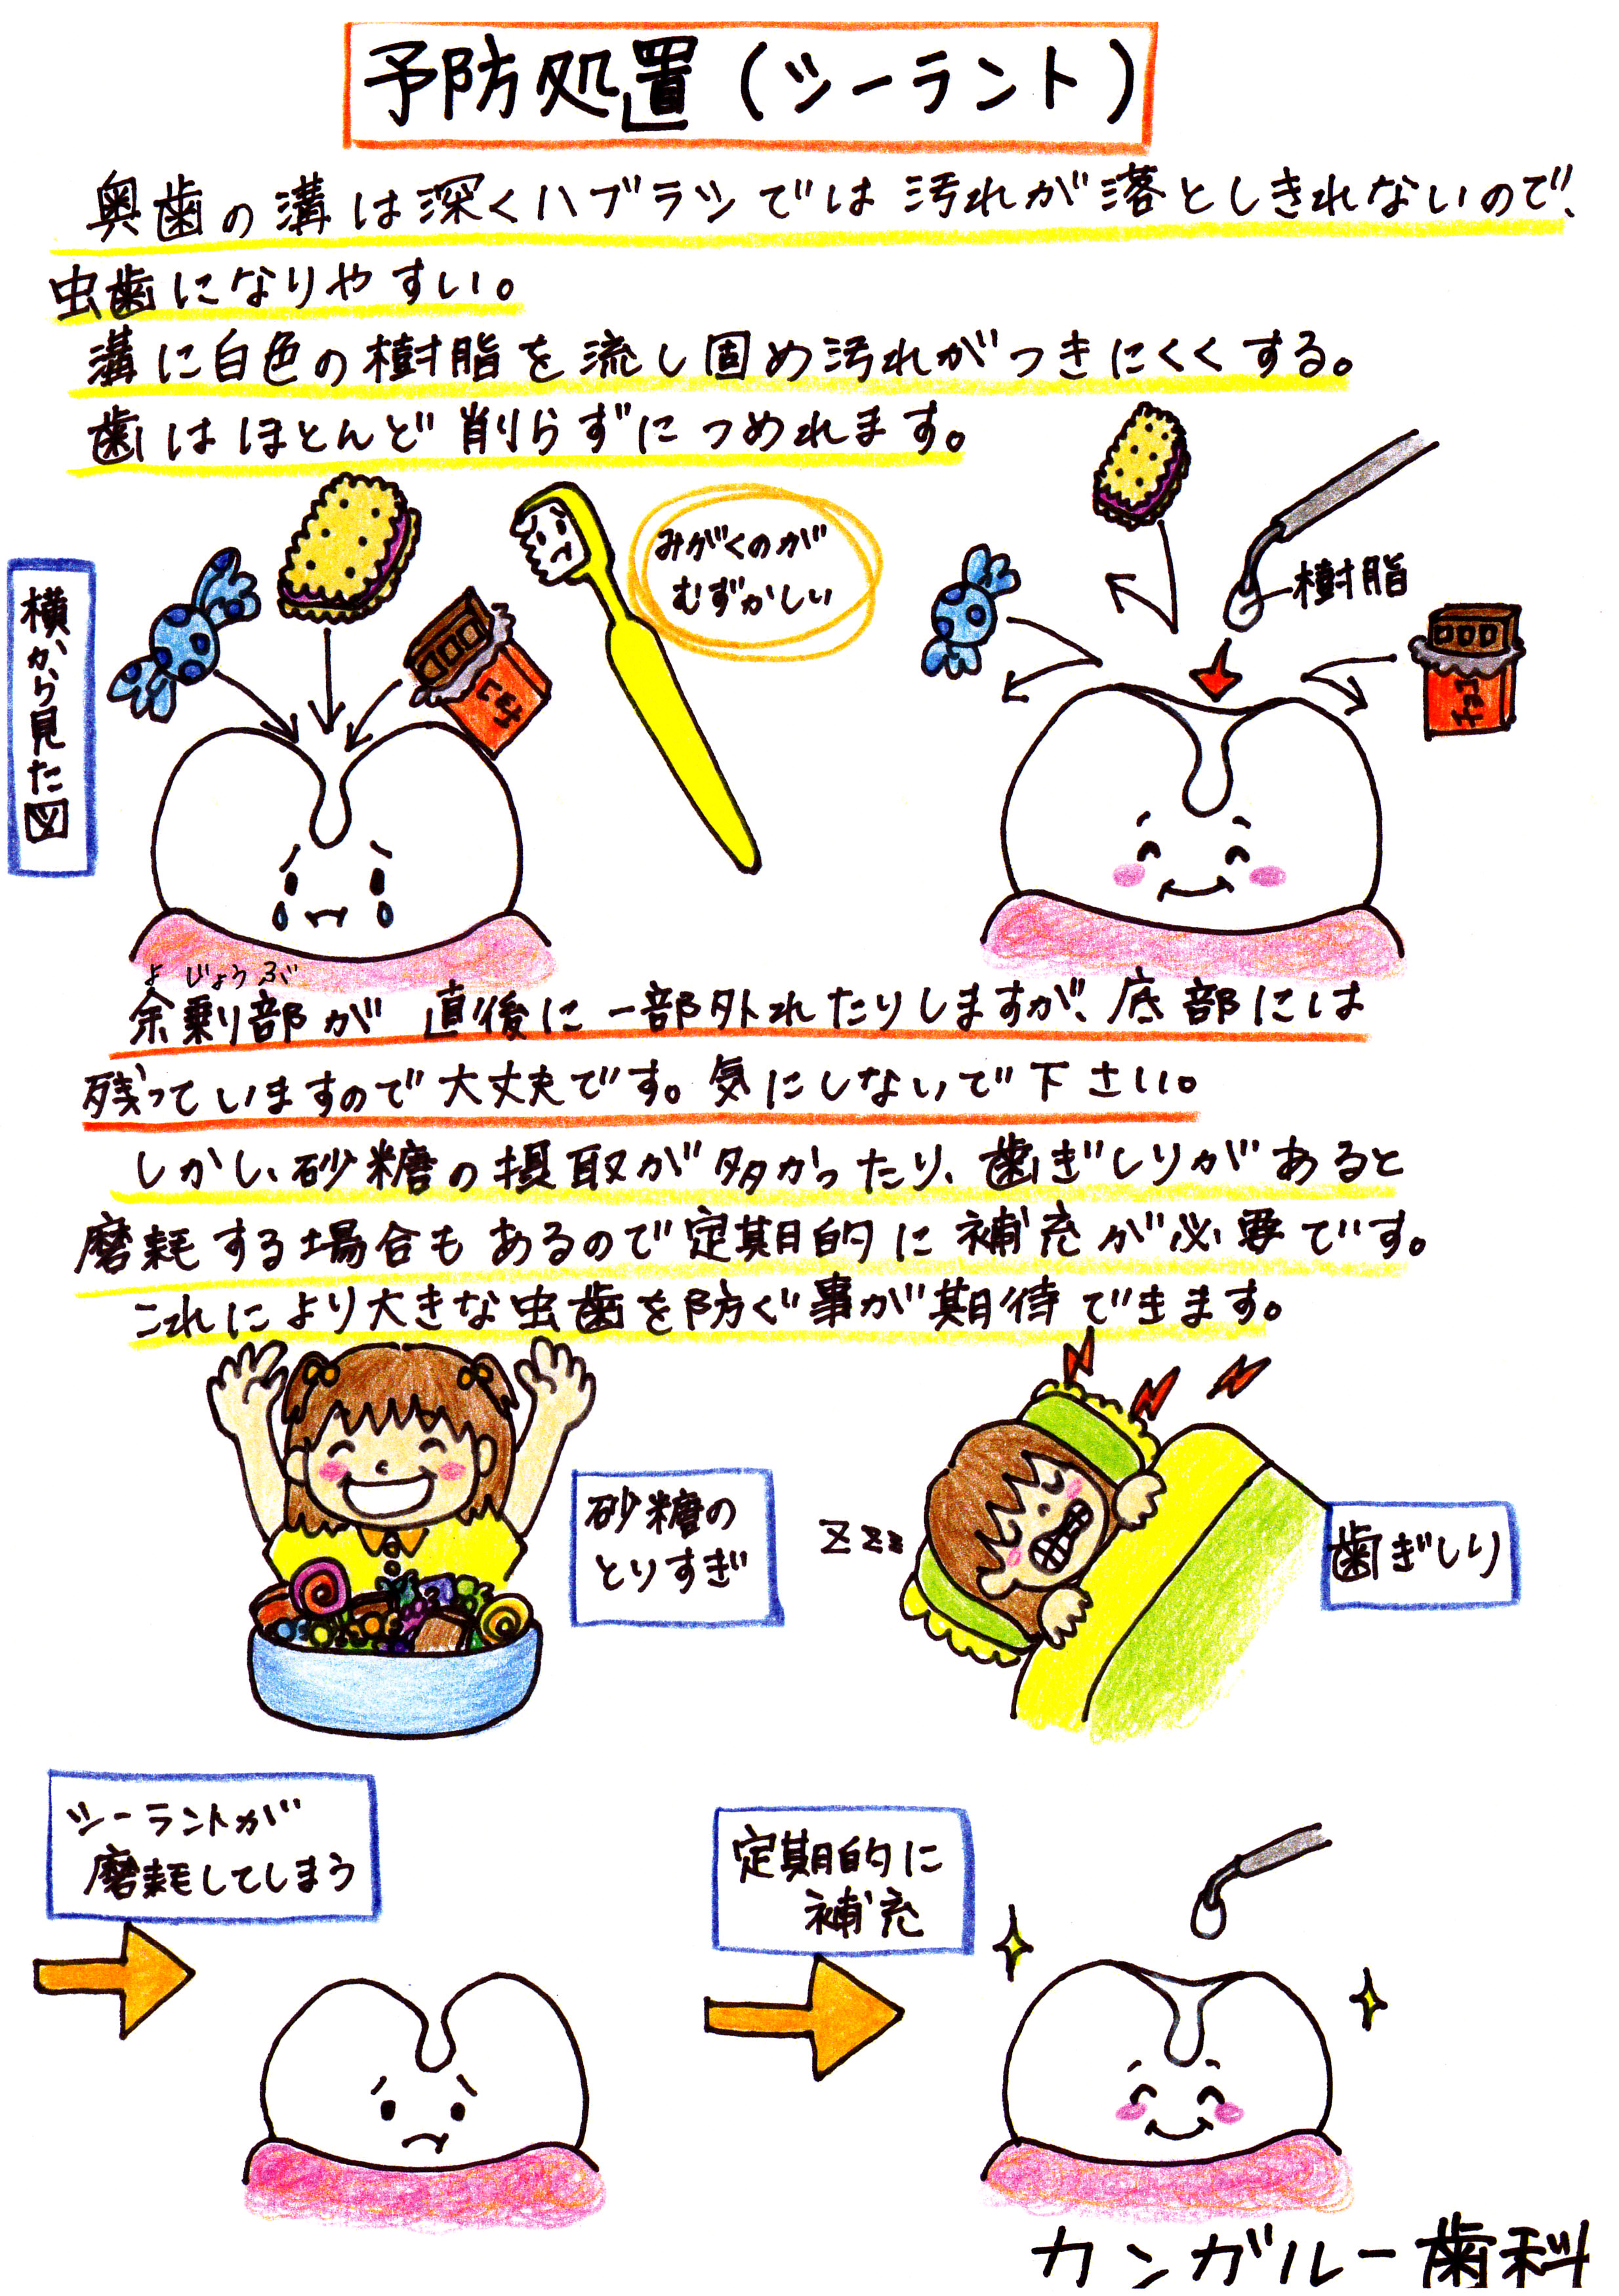 予防処置(シーラント)
奥歯の溝は深くハブラシでは汚れが落としきれないので、
虫歯になりやすい。
溝に白色の樹脂を流し固め汚れがつきにくくする。
歯はほとんど削らずにつめれます。
横から見た図
みがくのが
むずかしい
チョコ
樹脂
チョコ
よじょうぶ
余剰部が直後に一部外れたりしますが、底部には
残っていますので大丈夫です。気にしないで下さい。
しかし、砂糖の摂取が多かったり、歯ぎしりがあると
磨耗する場合もあるので定期的に補充が必要です。
これにより大きな虫歯を防ぐ事が期待できます。
砂糖の
とりすぎ
Zzz
歯ぎしり
シーラントが
磨耗してしまう
定期的に
補充
カンガルー歯科